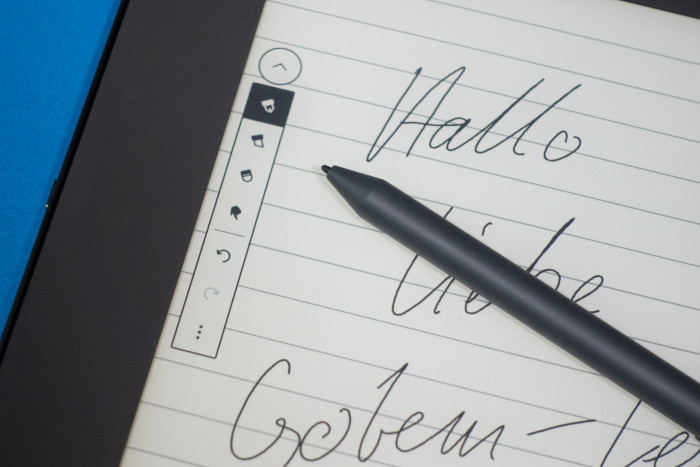 Hallo
liebe
Golem-Le